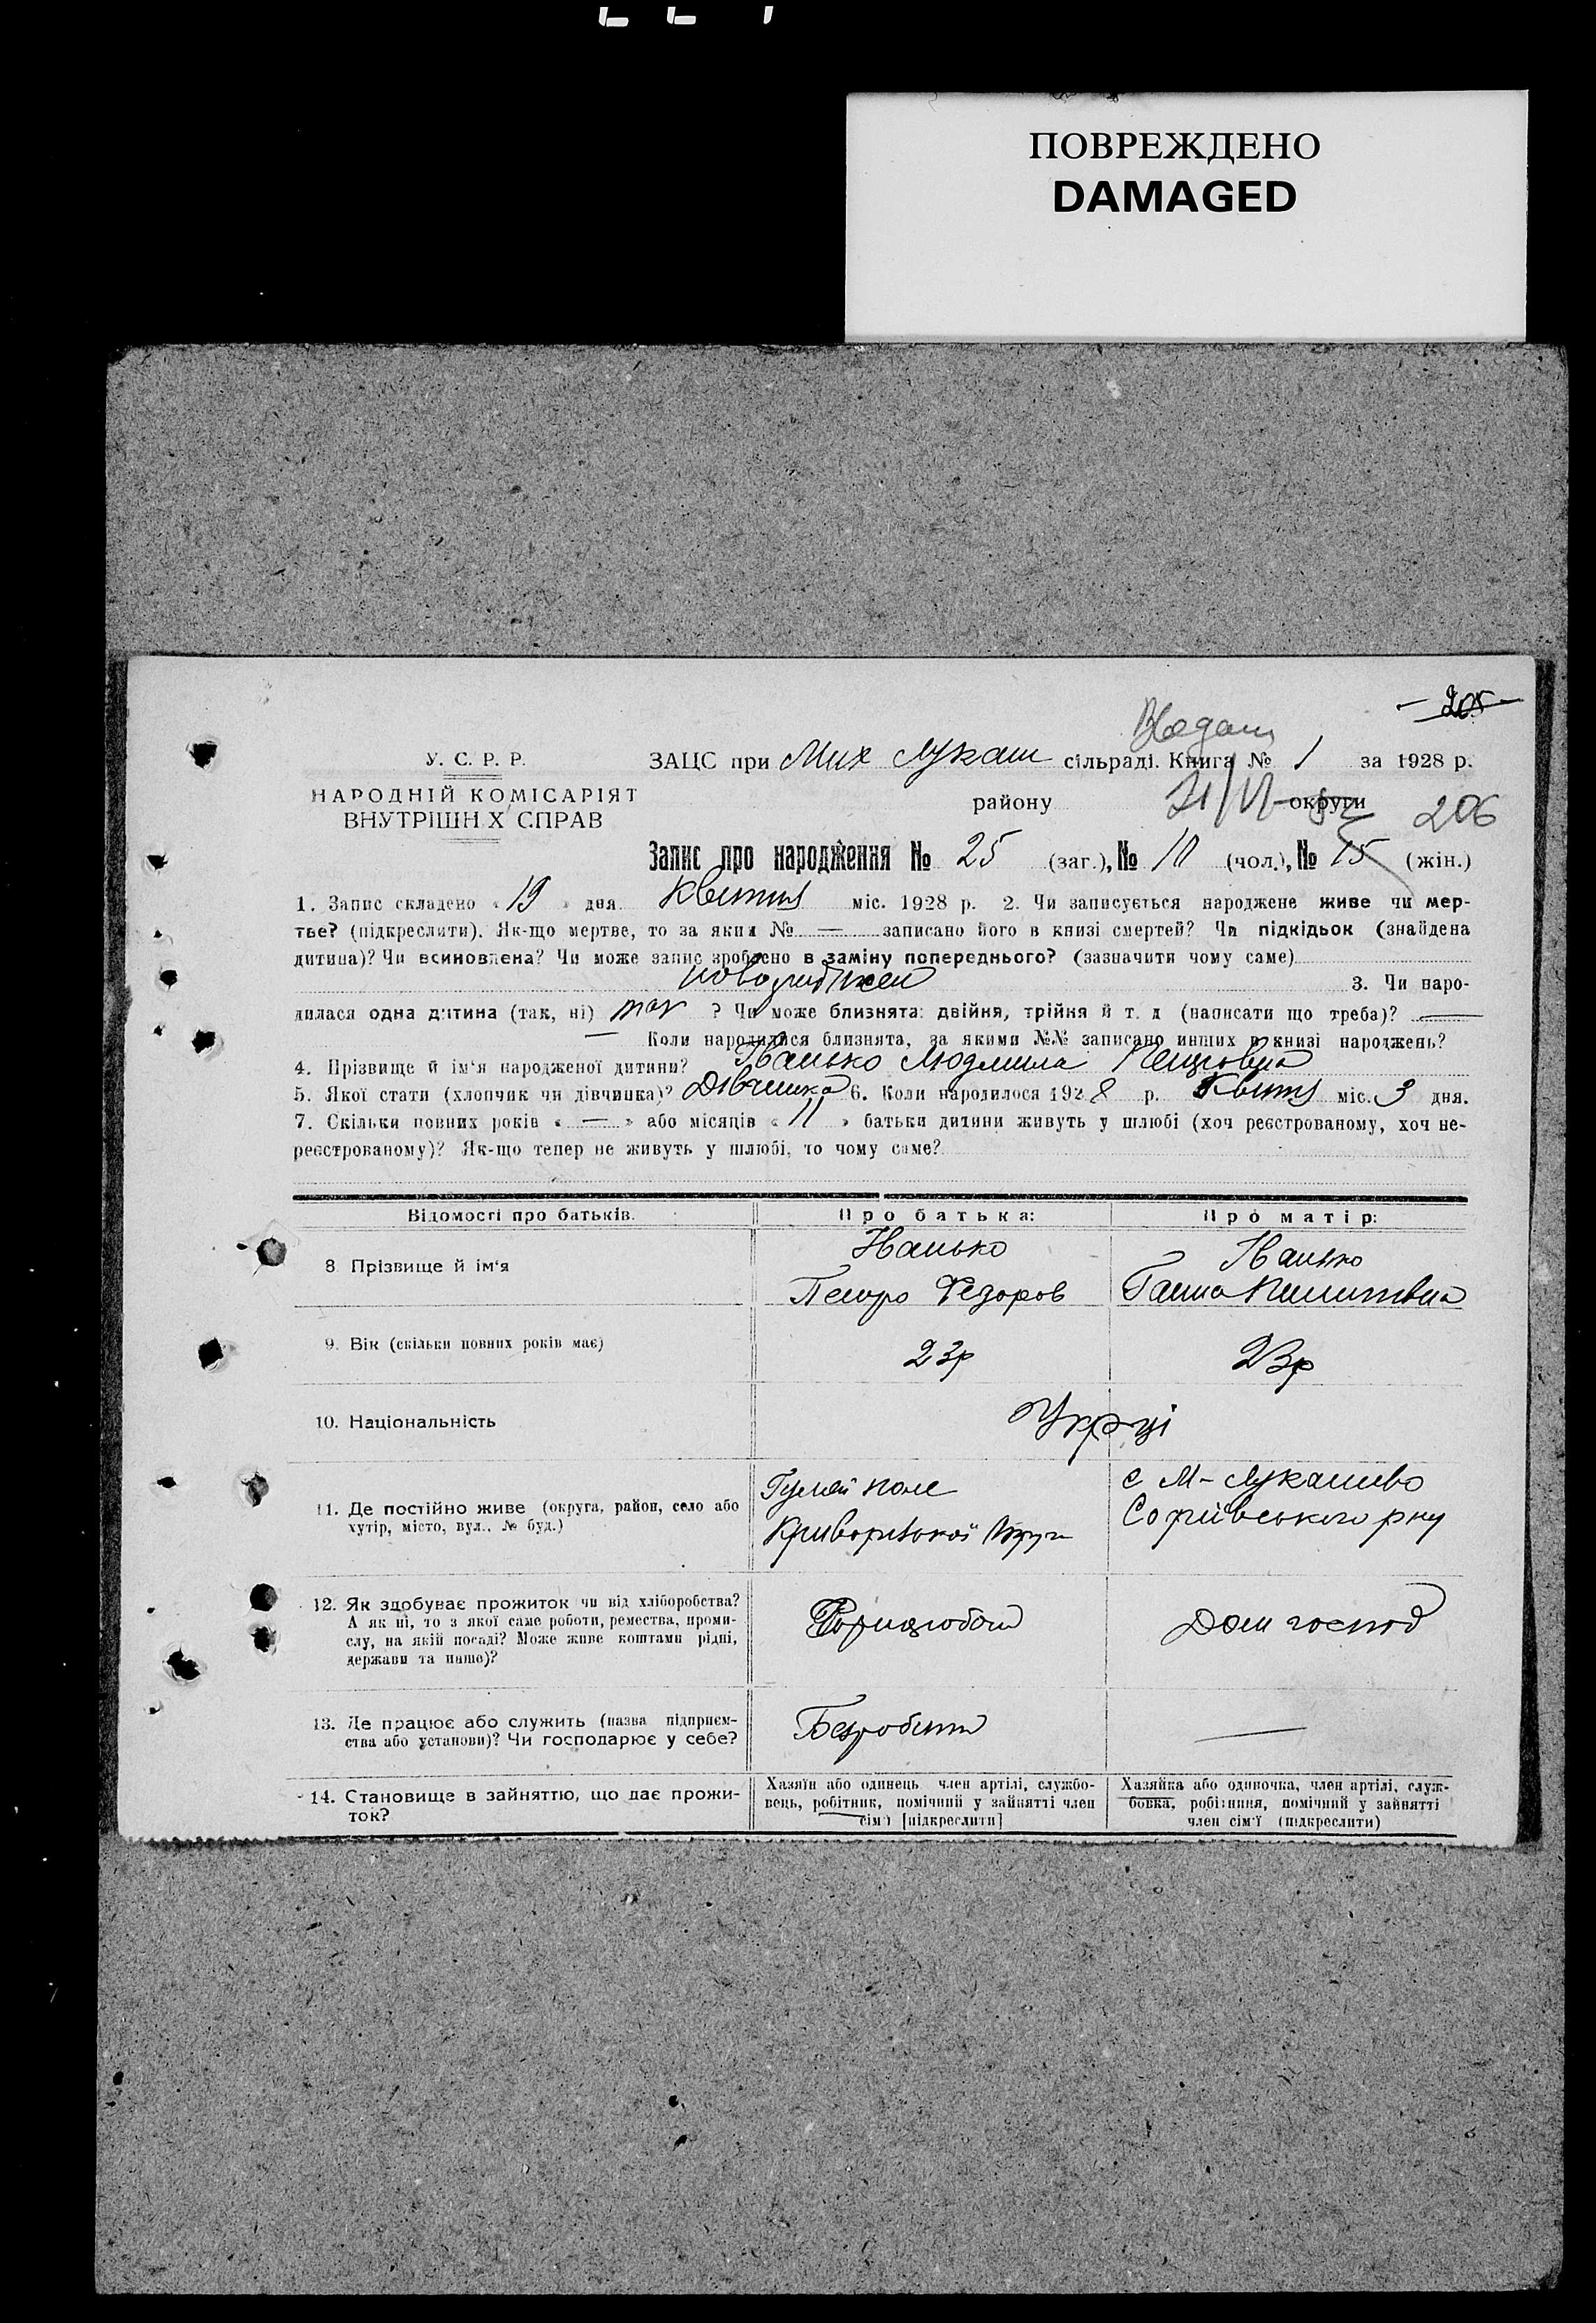 ПОВРЕЖДЕНО
DAMAGED
205
У. С. Р. Р.
НАРОДНІЙ КОМІСАРІЯТ
ВНУТРІШНІХ СПРАВ
ЗАЦС при Мих Лукаш сільраді. Книга № 1 за 1928 р.
району округи 206
Запис про народження № 25 (заг.), № 10 (чол.), № 15 (жін.)
1. Запис складено « 19 » дня Квітня міс. 1928 р. 2. Чи записується народжене живе чи мер-
тве? (підкреслити). Як-що мертве, то за яким № — записано його в книзі смертей? Чи підкідьок (знайдена
дитина)? Чи всиновлена? Чи може запис зроблено в заміну попереднього? (зазначити чому саме)
3. Чи наро-
дилася одна дитина (так, ні) так ? Чи може близнята: двійня, трійня й т. д (написати що треба)? —
— Коли народилися близнята, за якими №№ записано инших в книзі народжень?
4. Прізвище й ім'я народженої дитини? Іванько Людмила Петровна
5. Якої стати (хлопчик чи дівчинка)? Дівчинка 6. Коли народилося 1928 р. Квітня міс. 3 дня.
7. Скільки повних років « — » або місяців « 11 » батьки дитини живуть у шлюбі (хоч реєстрованому, хоч не-
реєстрованому)? Як-що тепер не живуть у шлюбі, то чому саме?
Відомості про батьків. Про батька: Про матір:
8. Прізвище й ім'я Іванько Петро Федоров Іванько Ганна
9. Вік (скільки повних років має) 23р 23р
10. Національність Укр-ці
11. Де постійно живе (округа, район, село або
хутір, місто, вул., № буд.)
Гуляй поле
Криворізької Округи
с М-Лукашево
Софіївського р-ну
12. Як здобуває прожиток чи від хліборобства?
А як ні, то з якої саме роботи, ремества, проми-
слу, на якій посаді? Може живе коштами рідні,
держави та инше)?
Дом господ
13. Де працює або служить (назва підприєм-
ства або установи)? Чи господарює у себе?
Безробітн
—
14. Становище в зайняттю, що дає прожи-
ток?
Хазяїн або одинець, член артілі, службо-
вець, робітник, помічний у зайнятті член
сім'ї [підкреслити]
Хазяйка або одиночка, член артілі, служ-
бовка, робітниця, помічний у зайнятті
член сім'ї (підкреслити)